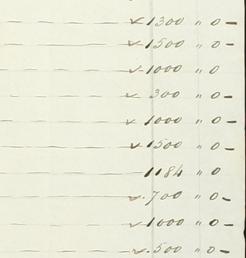 ✓ 1300 " 0 –
✓ 1500 " 0 –
✓ 1000 " 0
✓ 300 " 0 –
✓ 1000 " 0 –
✓ 1500 " 0 –
1184 " 0
✓ 700 " 0 –
✓ 1000 " 0 –
✓ 500 " 0 –